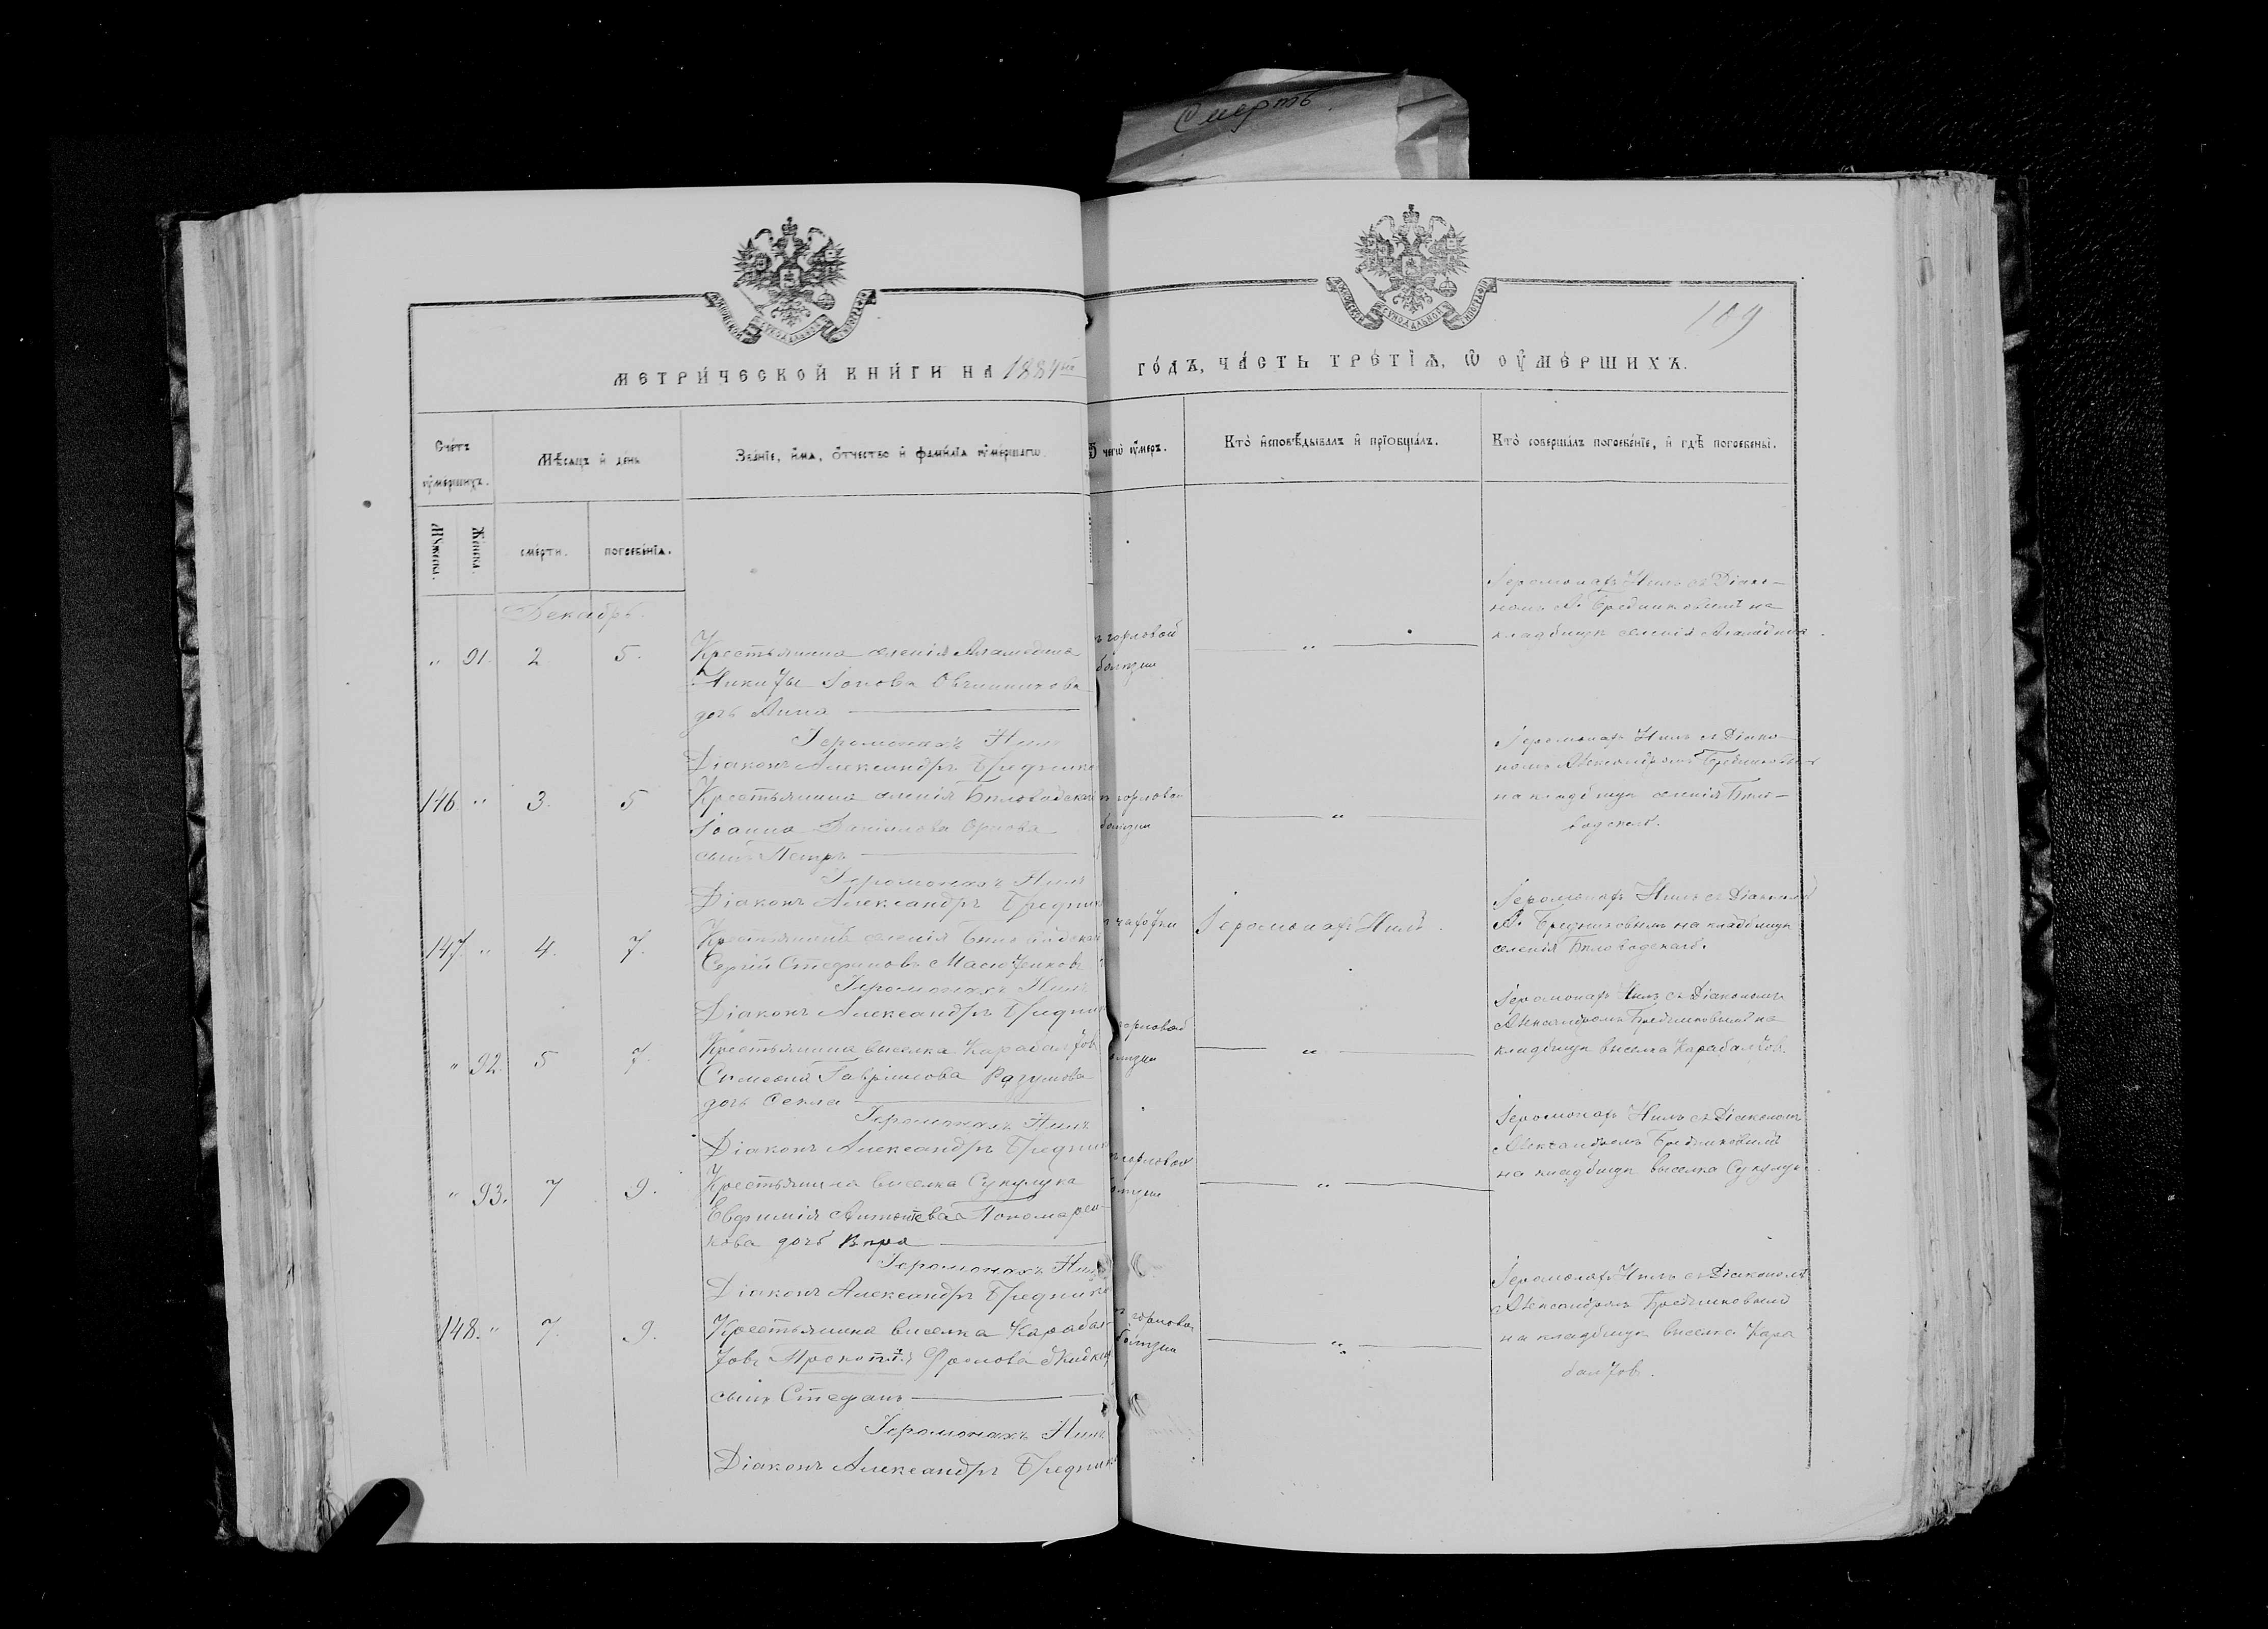 Смерть.
109
МЕТРИ́ЧЕСКОЙ КНИ́ГИ НА 1884ый ГО́ДЪ, ЧА́СТЬ ТРЕ́ТЇѦ, Ѿ ОУМЕ́РШИХЪ.
Сче́тъ оуме́ршихъ.
Мѣ́сѧцъ и де́нь
Зва́нїе, и́мѧ, о́тчество и фами́лїѧ оуме́ршагѡ.
Ѿ чегѡ̀ оу́меръ.
Кто̀ исповѣ́дывалъ и прїобща́лъ.
Кто̀ соверша́лъ погребе́нїе, и гдѣ̀ погребены̀.
Му́жеска.
Же́нска.
сме́рти.
погребе́нїѧ.
Декабрь.
" 91. 2 5.
Крестьянина селенія Аламедина
Никиты Іонова Овчинникова
дочь Анна
Іеромонахъ Нилъ
Діаконъ Александръ Бредник
горловой
болѣзни
"
Іеромонахъ Нилъ съ Діако-
номъ А. Бредниковымъ на
кладбищѣ селенія
146 " 3. 5
Крестьянина селенія Бѣловодскаго
Іоанна Даніилова Орлова
сынъ Петръ
Іеромонахъ Нилъ
Діаконъ Александръ Бредник
горловой
болѣзни
"
Іеромонахъ Нилъ съ Діако-
номъ Александромъ Бредниковым
на кладбищѣ селенія Бѣло-
водскаго.
147. " 4. 7.
Крестьянинъ селенія Бѣловодскаго
Сергій Стефановъ
Іеромонахъ Нилъ
Діаконъ Александръ Бредник
чахотки
Іеромонахъ Нилъ.
Іеромонахъ Нилъ съ Діакономъ
А. Бредниковымъ на кладбищѣ
селенія Бѣловодскаго.
" 92. 5 7.
Крестьянина выселка Карабалтов
Симеона Гавріилова Разумова
дочь Ѳекла
Іеромонахъ Нилъ
Діаконъ Александръ Бредник
горловой
болѣзни
"
Іеромонахъ Нилъ съ Діакономъ
Александромъ Бредниковымъ на
кладбищѣ выселка Карабалтов.
" 93. 7 9.
Крестьянина выселка Сукулука
Евфимія Антонова Пономарен-
кова дочь Вѣра
Іеромонахъ Нилъ
Діаконъ Александръ Бреднико
горловой
болѣзни
"
Іеромонахъ Нилъ съ Діакономъ
Александромъ Бредниковымъ
на кладбищѣ выселка Сукулук
148. " 7. 9.
Крестьянина выселка Карабал-
тов Прокопія Фролова
сынъ Стефанъ
Іеромонахъ Нилъ
Діаконъ Александръ Бредник
горловой
болѣзни
"
Іеромонахъ Нилъ съ Діакономъ
Александромъ Бредниковымъ
на кладбищѣ выселка Кара
балтов.